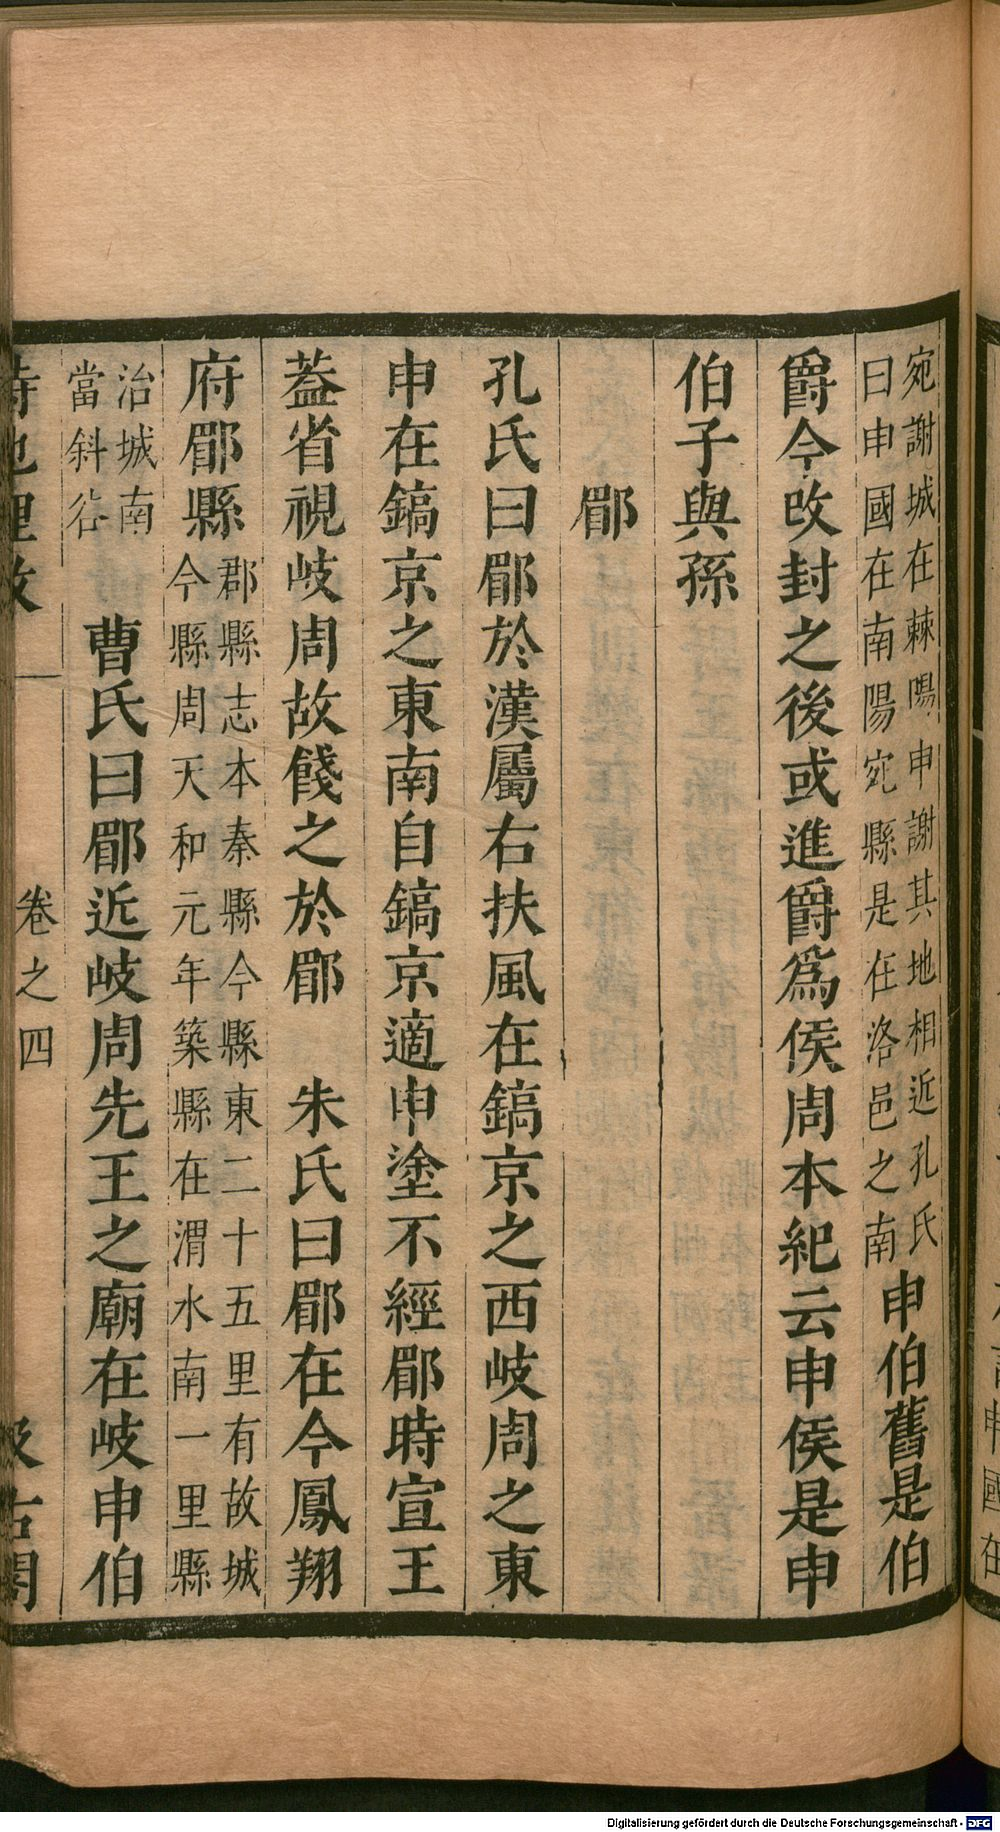 宛謝城在棘陽申謝其地相近孔氏
曰申國在南陽宛縣是在洛邑之南
申伯舊是伯
爵今改封之後或進爵爲侯周本紀云申侯是申
伯子與孫
郿
孔氏曰郿於漢屬右扶風在鎬京之西岐周之東
申在鎬京之東南自鎬京適申塗不經郿時宣王
葢省視岐周故餞之於郿　朱氏曰郿在今鳳翔
府郿縣
郡縣志本秦縣今縣東二十五里有故城
今縣周天和元年築縣在渭水南一里縣
治城南
當斜谷
曹氏曰郿近岐周先王之廟在岐申伯
詩地理攷
卷之四
汲古閣
申國在
Digitalisierung gefördert durch die Deutsche Forschungsgemeinschaft - DFG